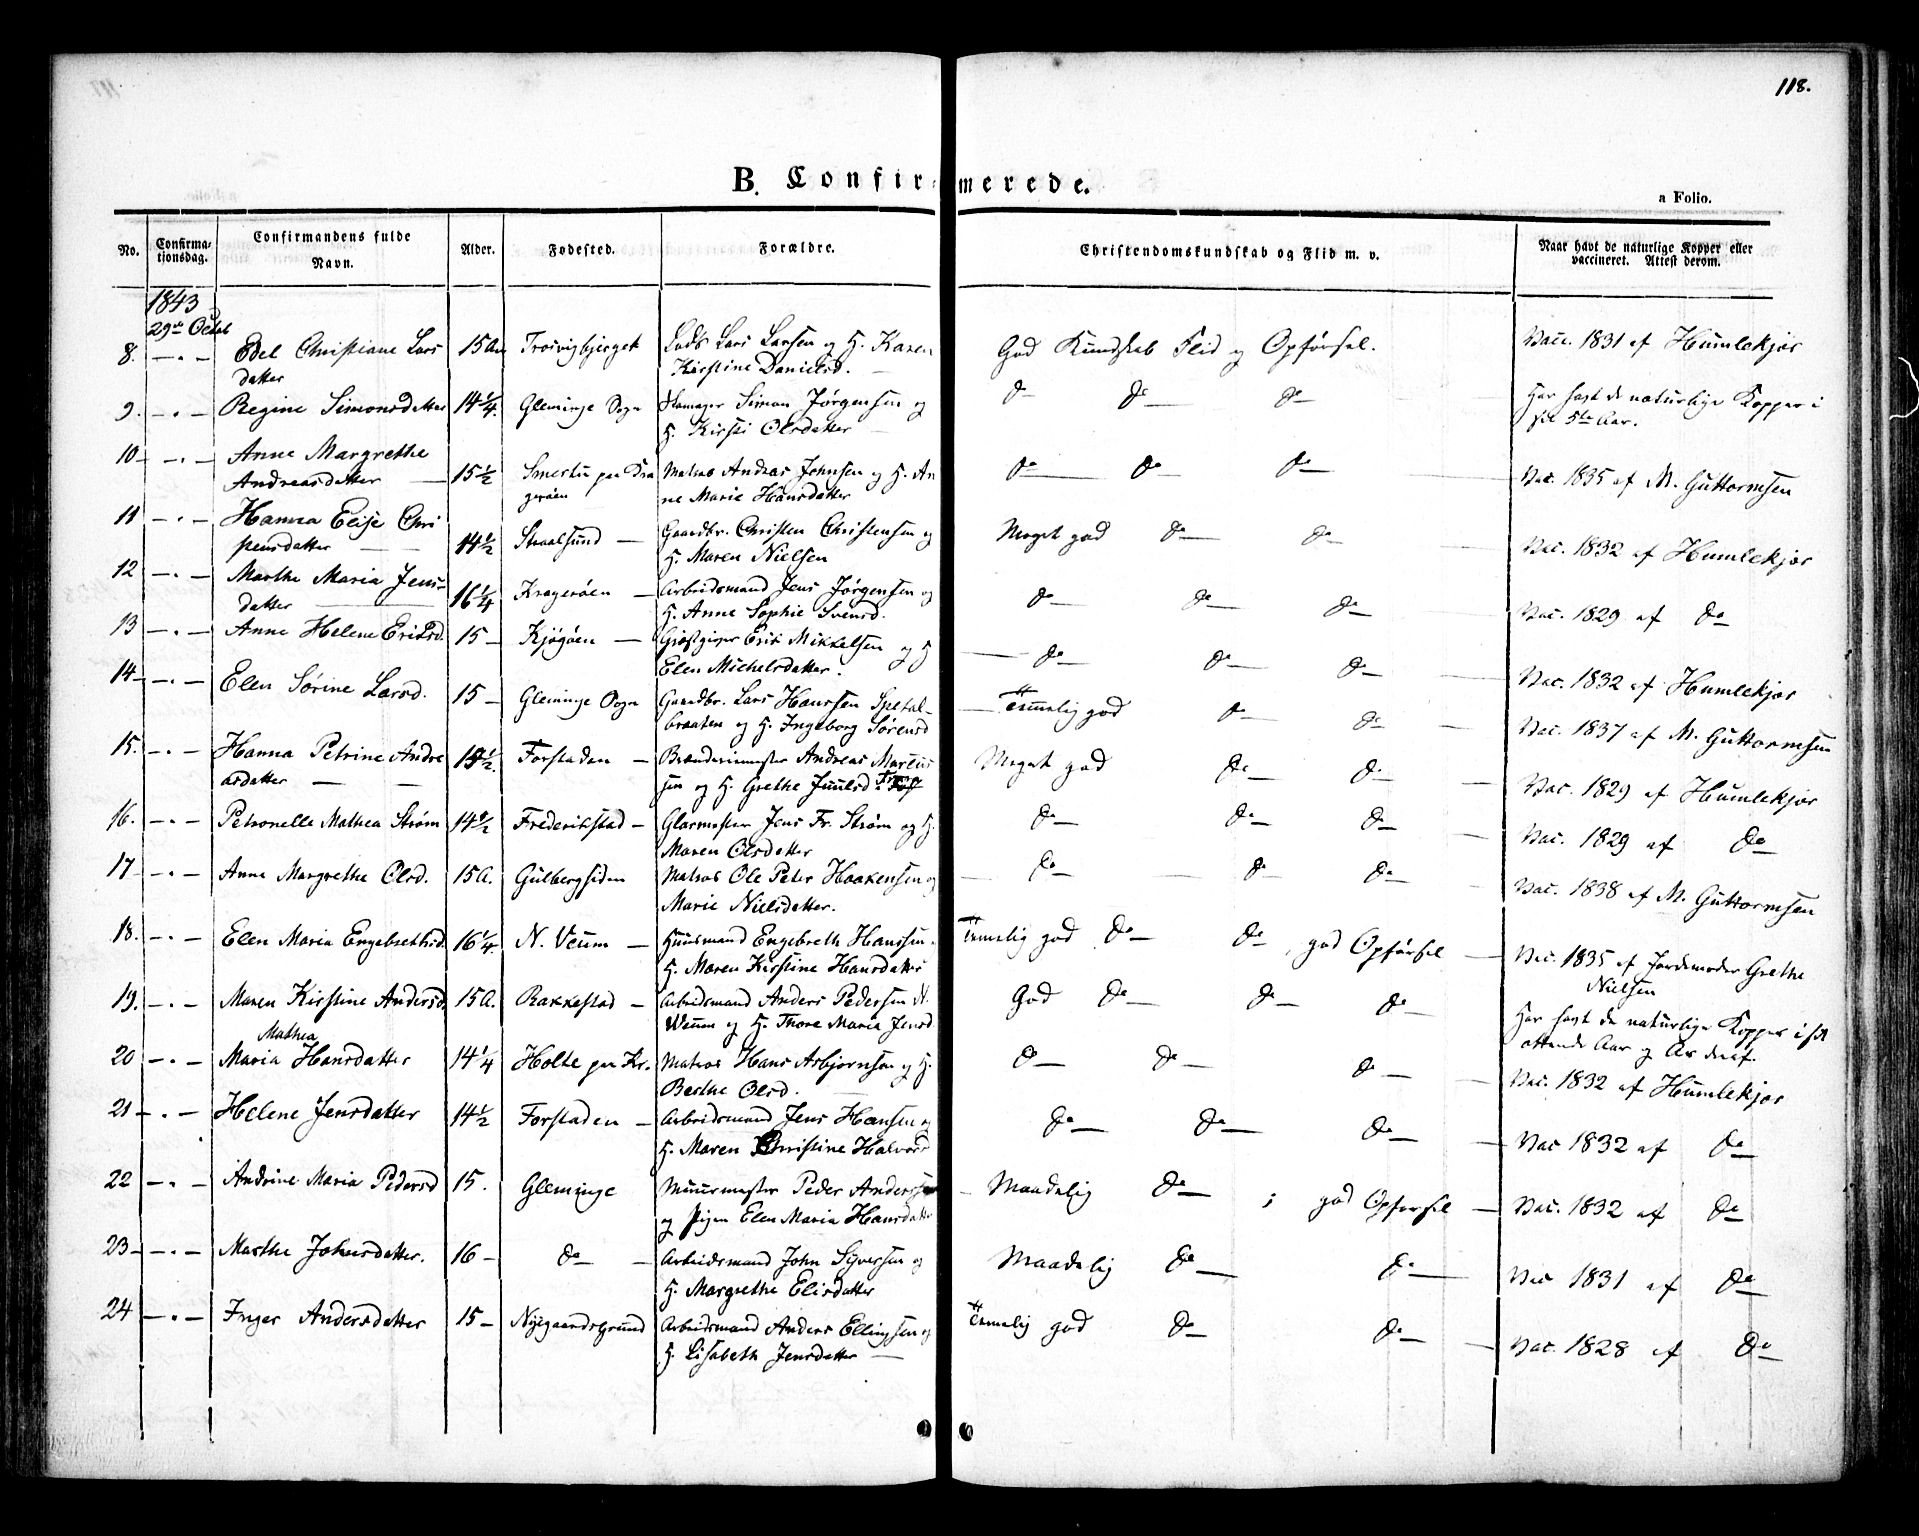 118.
B. Confirmerede.
a Folio.
No. Confirmationsdag. Confirmandens fulde Navn. Alder. Fødested. Forældre. Christendomskundskab og Flid m. v. Naar havt de naturlige Kopper eller vaccineret. Attest derom.
1843
29de Octob
8. — " — Edel Christiane Lars 15 Aar Trosvigbjerget Lods Lars Larsen og H. Karen God Kundskab Flid og Opførsel. Vacc. 1831 af Humlekjær
datter Kirstine Danielsd. —
9. — " — Regine Simonsdatter 14 1/4. Gleminge Sogn Simon Jørgensen og do do do Har havt de naturlige Kopper i
H. Kirsti Olsdatter — sit 5te Aar.
10 — " — Anne Margrethe
Andreasdatter — 15 1/2 Smertu paa Kra Matros Andreas Johnsen og H. An do do do Vac. 1835 af M. Guttormsen
gerøen ne Marie Hansdatter
11 — " — Hanna Elise Chri
stensdatter — 14 1/2 Straalsund — Gaardbr. Christen Christensen og Meget god do do Vac. 1832 af Humlekjær
H. Maren Nielsen
12 — " — Marthe Maria Jens-
datter — 16 1/4 Kragerøen — Arbeidsmand Jens Jørgensen og do do do Vac. 1829 af do
H. Anne Sophie Svensd.
13 — " — Anne Helene Eriksd. 15 — Kjøgøen — Gjæstgiver Erik Mikkelsen og H do do do Vac. 1832 af Humlekjær
Elen Michelsdatter.
14 — " — Elen Sørine Larsd. 15 — Gleminge Sogn Gaardbr. Lars Hanssen Spetal- Temmelig god do do Vac. 1837 af M. Guttormsen
braaten og H. Ingeborg Sørensd
15. — " — Hanna Petrine Andre 15 1/2. Forstaden — Brændeviinsmester Andreas Marcus Meget god do do Vac. 1829 af Humlekjær
asdatter — sen og H. Grethe Juulsd
16. — " — Petronelle Mathea Strøm 14 1/2 Frederikstad — Glarmester Jens Fr. Strøm og H. do do do Vac. 1829 af do
Maren Olsdatter
17 — " — Anne Margrethe Olsd. 15 A. Gulbergsiden Matros Ole Peter Haakensen og do do do Vac. 1838 af M. Guttormsen
Marie Nielsdatter.
18. — " — Elen Maria Engebrethsd. 16 1/4. N. Veum — Huusmand Engebreth Hanssen. Temmelig god do do, god Opførsel Vac. 1835 af Jordemoder Grethe
H. Maren Kirstine Hansdatter Nielsen
19. — " — Maren Kirstine Andersd. 15 A. Rakkestad — Arbeidsmand Anders Pedersen N. God do do do Har havt de naturlige Kopper i sit
Weum og H. Thore Maria Jensd ottende Aar og Ar deraf.
Mathea
20 — " — Maria Hansdatter 14 1/4 Holte paa Kr. Matros Hans Asbjørnsen og H. do do do Vac. 1832 af Humlekjær
Berthe Olsd.
21 — " — Helene Jensdatter 14 1/2 Forstaden — Arbeidsmand Jens Hansen og do do do Vac 1832 af do
H. Maren Christine Halvorsd
22 — " — Andrine Maria Pedersd 15. Gleminge Muurmester Peder Anderssen Maadelig do ; god Opførsel — Vac. 1832 af do
og Pigen Elen Maria Hansdatter
23 — " — Marthe Johnsdatter. 16 — do — Arbeidsmand John Syversen og Maadelig do do Vac 1831 af do
H. Margrethe Elisdatter
24 — " — Inger Andersdatter 15 — Nygaardsgrund Arbeidsmand Anders Ellingsen og Temmelig god do do Vac. 1828 af do
H. Lisabeth Jensdatter —